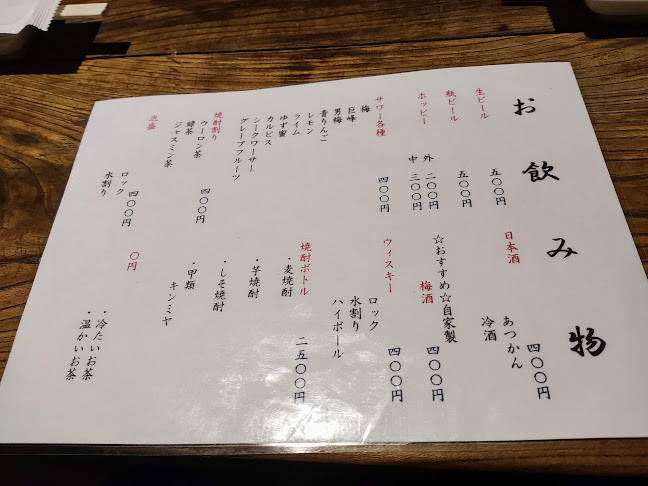 お飲み物
生ビール 五〇〇円
瓶ビール 五〇〇円
ホッピー
外 二〇〇円
中 三〇〇円
サワー各種 四〇〇円
梅
巨峰
男梅
青りんご
レモン
ライム
ゆず蜜
カルピス
シークワーサー
グレープフルーツ
焼酎割り 四〇〇円
ウーロン茶
緑茶
ジャスミン茶
泡盛
ロック 四〇〇円
水割り
日本酒
あつかん 四〇〇円
冷酒
☆おすすめ☆自家製
梅酒 四〇〇円
ウィスキー
ロック 四〇〇円
水割り
ハイボール
焼酎ボトル 二五〇〇円
・麦焼酎
・芋焼酎
・しそ焼酎
・甲類
キンミヤ
〇円
・冷たいお茶
・温かいお茶